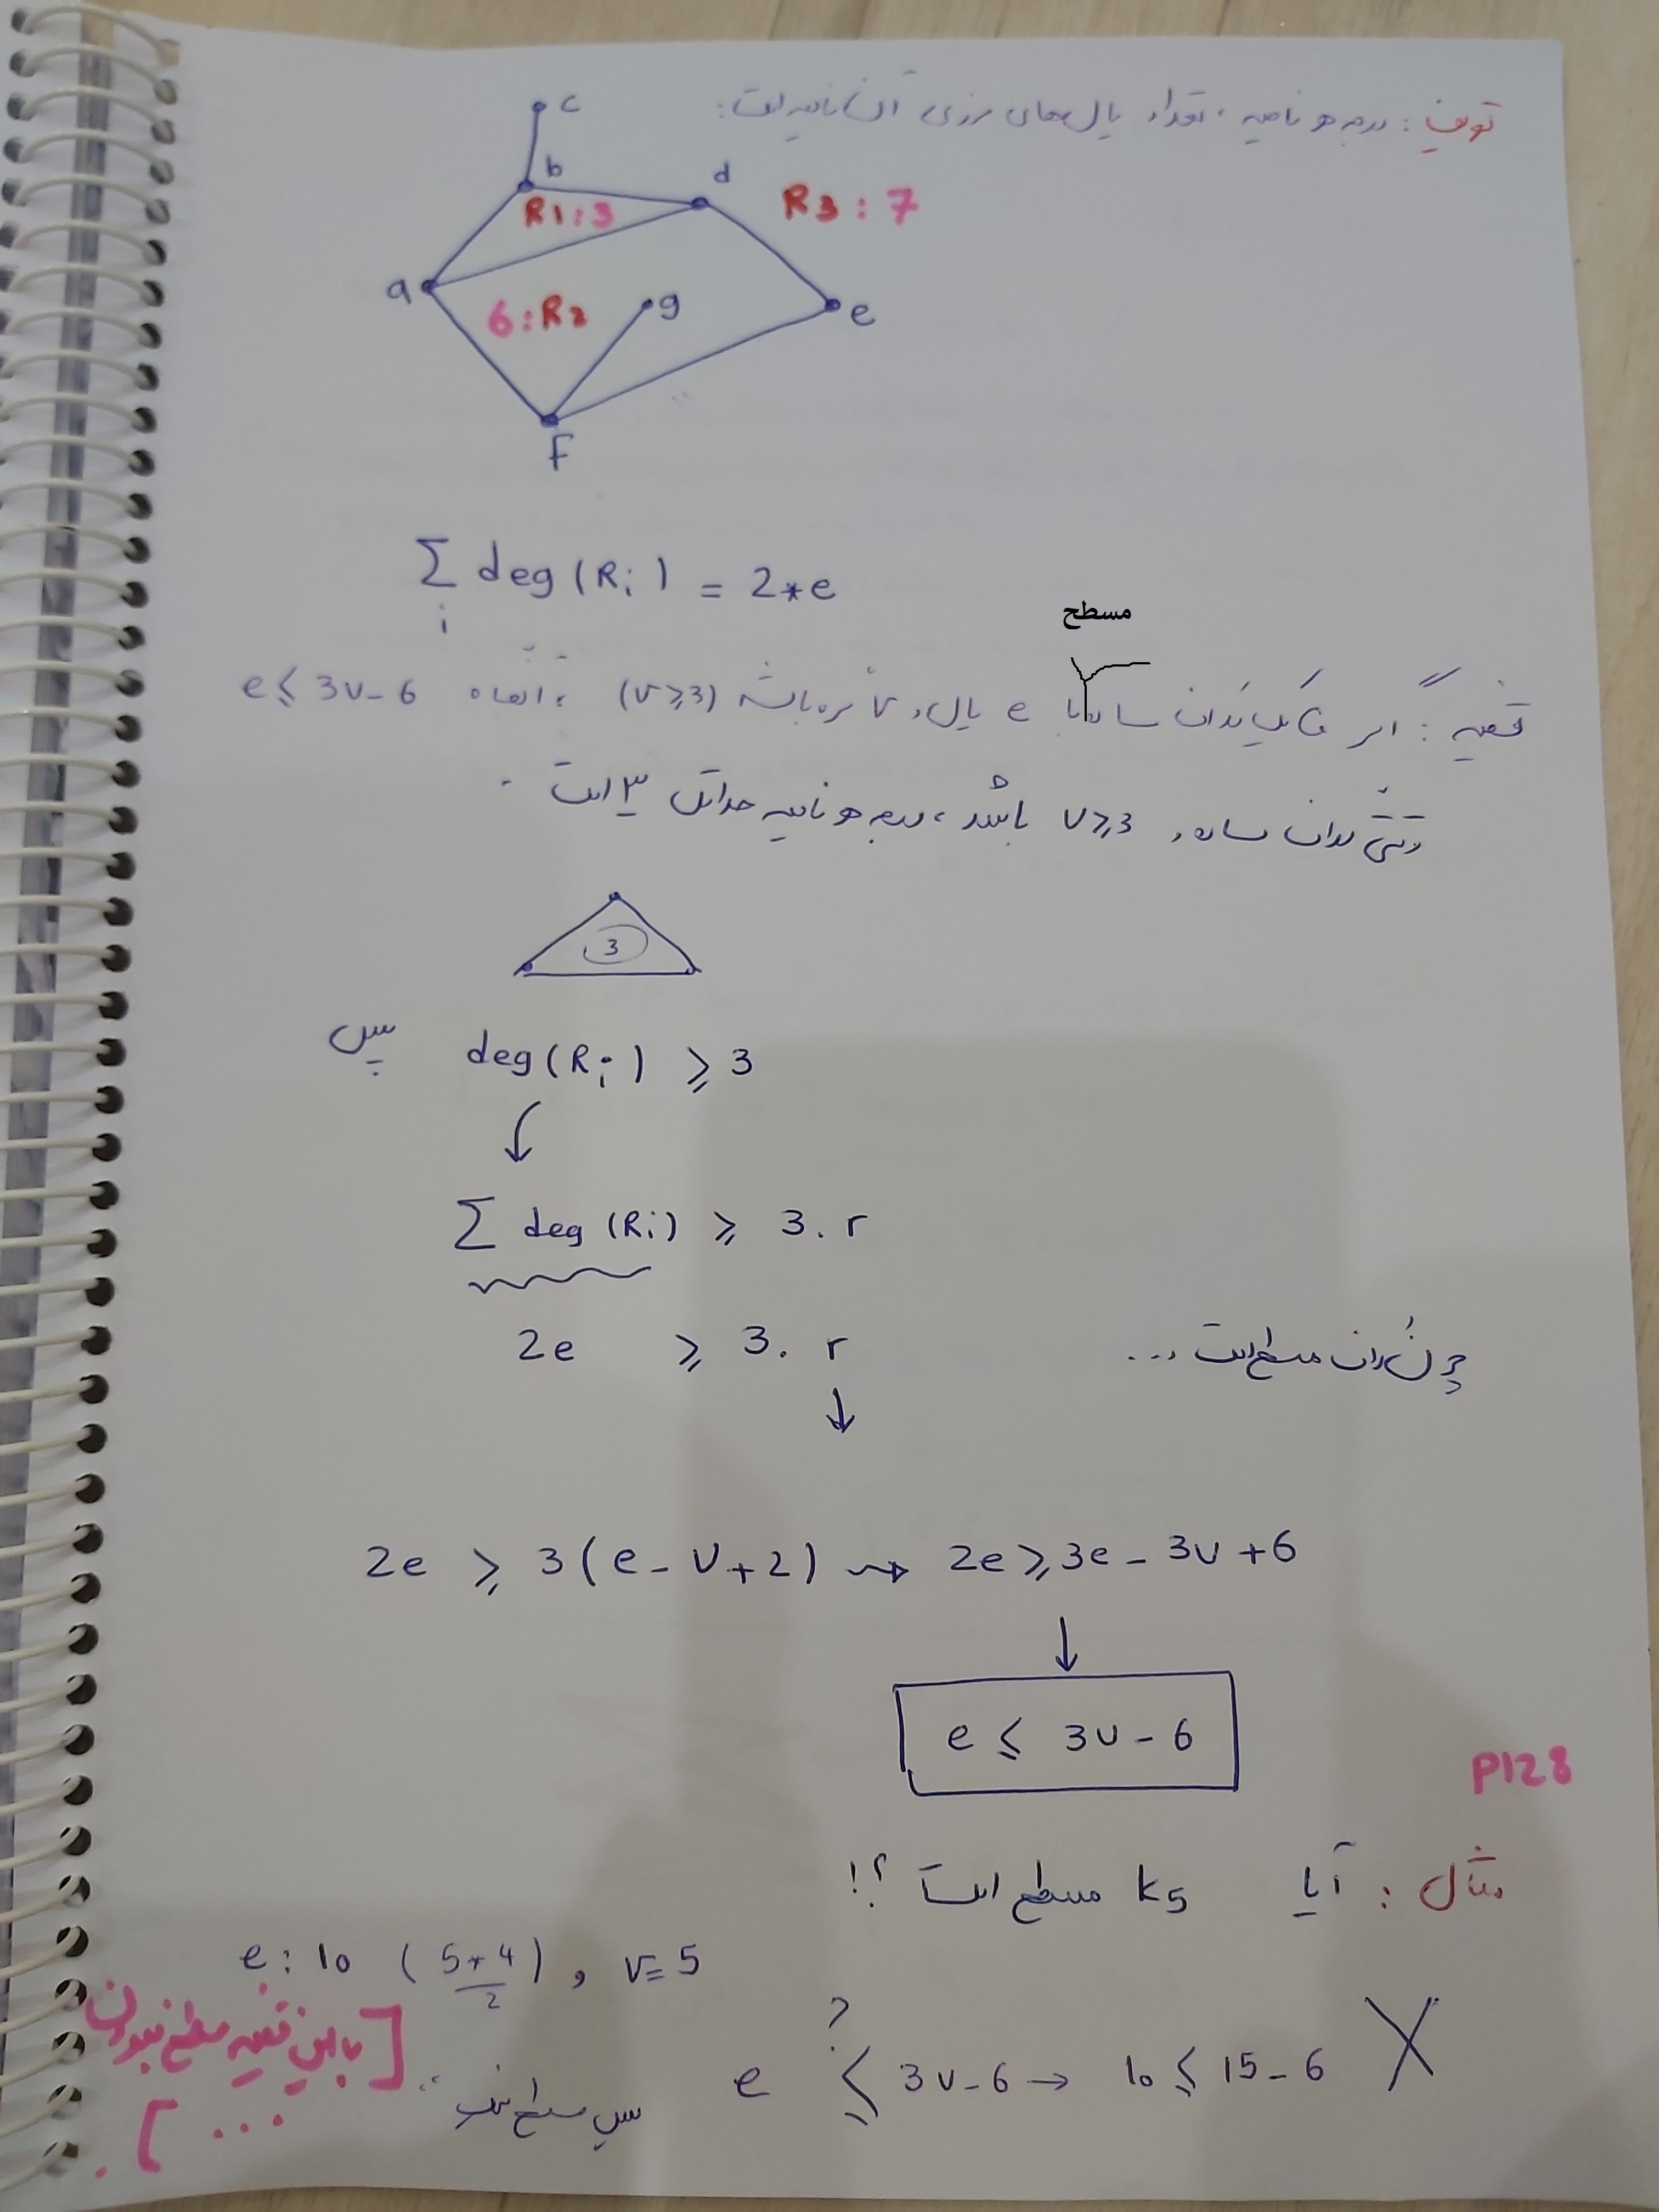 تعریف : درجه هر ناحیه ، تعداد یال‌های مرزی آن ناحیه است:
c
b
d
R1 : 3
R3 : 7
a
6 : R2
g
e
F
∑ deg (Ri) = 2*e
i
مسطح
قضیه : اگر G یک گراف ساده با e یال و v گره باشد (v≥3) ، آنگاه e ≤ 3v-6
وقتی گراف ساده و v≥3 باشد ، درجه هر ناحیه حداقل ۳ است .
3
پس deg(Ri) ≥ 3
∑ deg (Ri) ≥ 3. r
2e ≥ 3. r
چون گراف مسطح است ...
2e ≥ 3(e-v+2) ⇝ 2e ≥ 3e-3v+6
e ≤ 3v-6
P128
مثال : آیا k5 مسطح است ؟!
e: 10 (5*4/2) , v=5
e ≤? 3v-6 → 10 ≤ 15-6 X
پس مسطح نیست
[با این قضیه مسطح نبودن
... ]